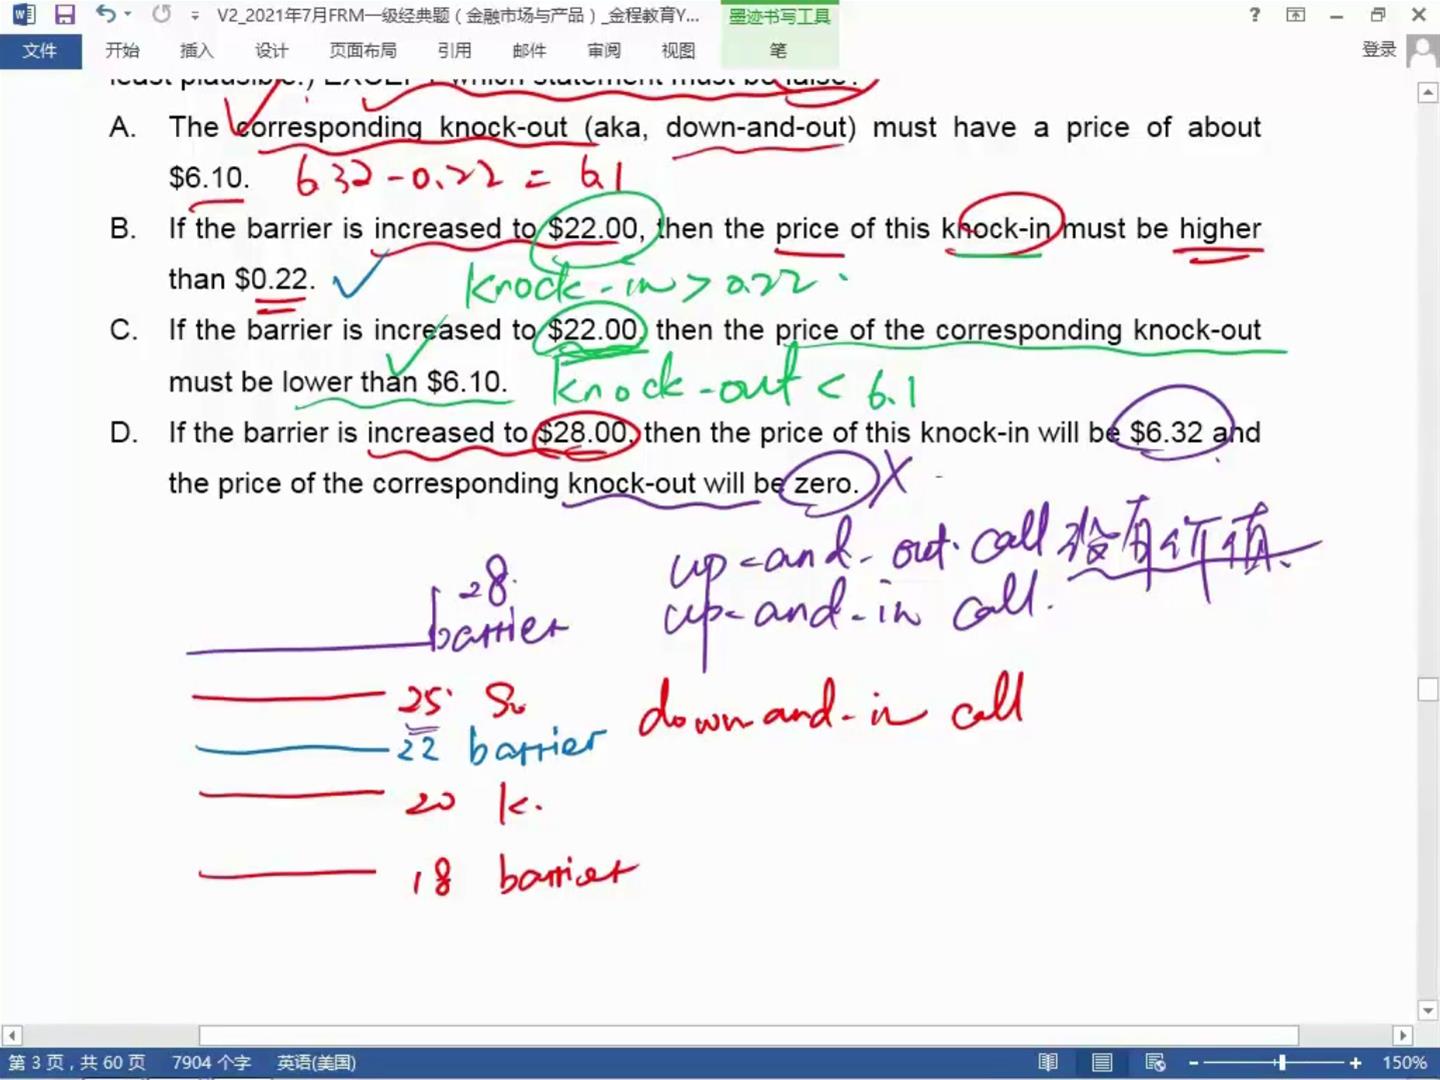 V2_2021年7月FRM一级经典题（金融市场与产品）_金程教育Y...
墨迹书写工具
文件 开始 插入 设计 页面布局 引用 邮件 审阅 视图 笔 登录
least plausible.) EXCEPT which statement must be false?
A. The corresponding knock-out (aka, down-and-out) must have a price of about
$6.10. 6.32-0.22=6.1
B. If the barrier is increased to $22.00, then the price of this knock-in must be higher
than $0.22. knock-in>0.22
C. If the barrier is increased to $22.00, then the price of the corresponding knock-out
must be lower than $6.10. knock-out<6.1
D. If the barrier is increased to $28.00, then the price of this knock-in will be $6.32 and
the price of the corresponding knock-out will be zero. X
up-and-out call 没有价值.
28
barrier up-and-in call.
25 S₀ down-and-in call
22 barrier
20 k.
18 barrier
第 3 页，共 60 页 7904 个字 英语(美国) 150%